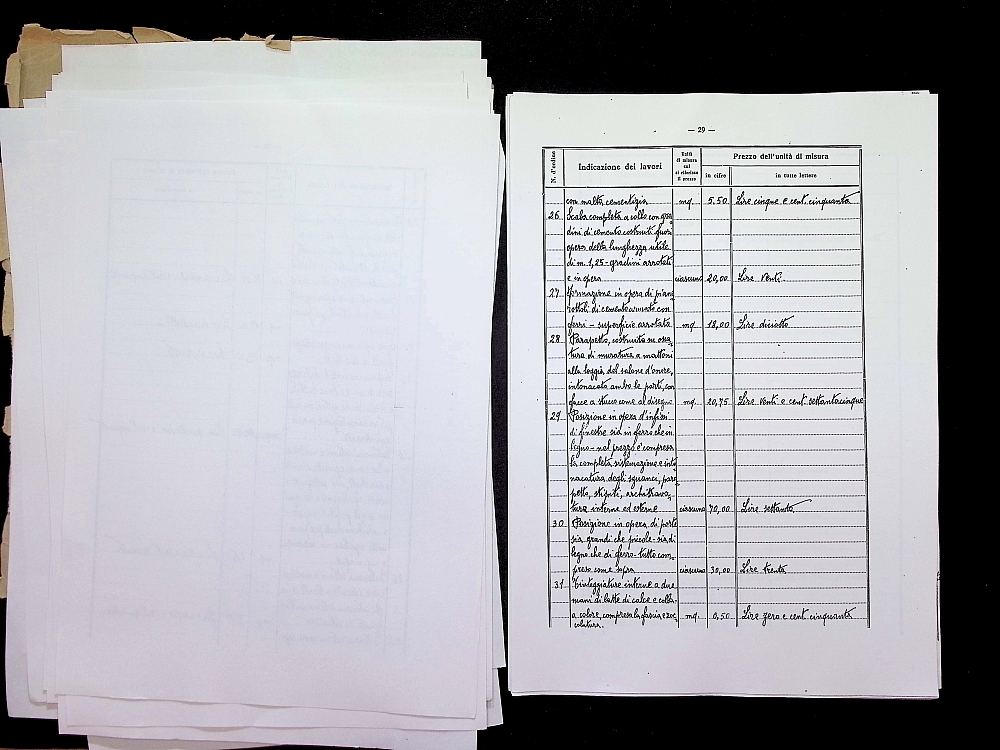 — 29 —
N. d'ordine
Indicazione dei lavori
Unità di misura cui si riferisce il prezzo
Prezzo dell'unità di misura
in cifre
in tutte lettere
con malta cementizia mq. 5,50 Lire cinque e cent. cinquanta
26 Scala completa a collo con gra-
dini di cemento costruiti fuori
opera della lunghezza utile
di m. 1,25 - gradini arrotati
e in opera ciascuno 20,00 Lire Venti.
27 Formazione in opera di piane-
rottoli di cemento armato con
ferri - superficie arrotata mq. 18,00 Lire diciotto
28 Parapetto, costruito su ossa-
tura di muratura a mattoni
alla loggia del salone d'onore,
intonacato ambo le parti, con
fasce a stucco come al disegno mq. 20,75 Lire Venti e cent. settantacinque
29 Posizione in opera d'infissi
di finestre sia in ferro che in
legno - nel prezzo è compresa
la completa sistemazione e into-
nacatura degli sguanci, para-
petto, stipiti, architrava-
tura interne ed esterne ciascuno 70,00 Lire settanta
30 Posizione in opera di porte
sia grandi che piccole - sia di
legno che di ferro - tutto com-
preso come sopra ciascuno 30,00 Lire trenta
31 Tinteggiature interne a due
mani di latte di calce e colla -
a colore, compresa la fascia e zoc-
colatura. mq. 0,50 Lire zero e cent. cinquanta